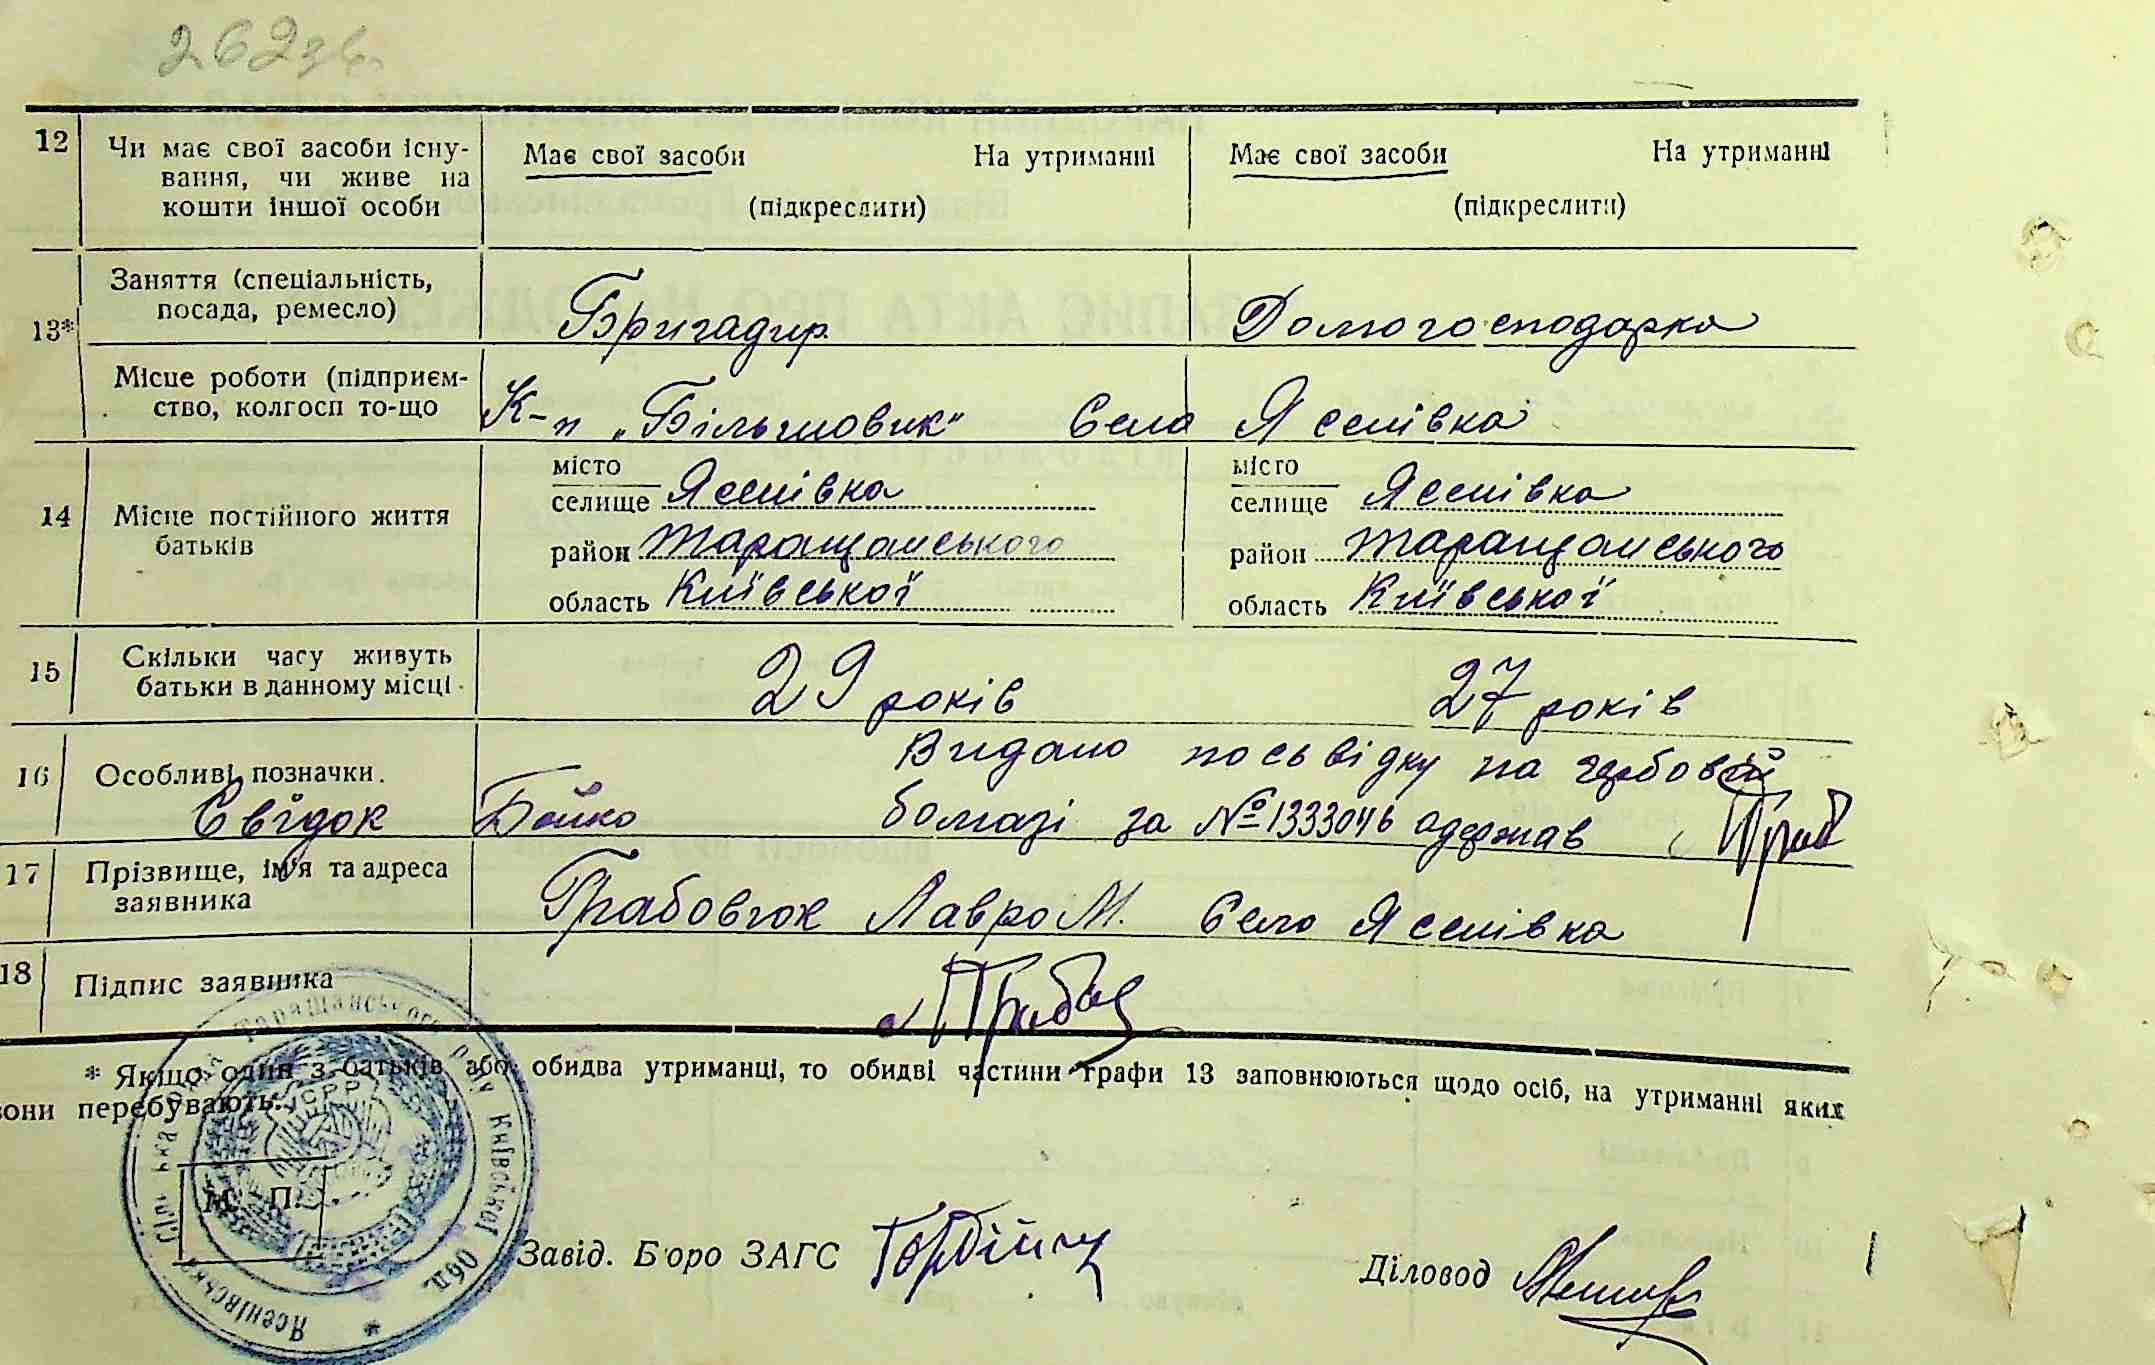 262зв
12 Чи має свої засоби існу-
вання, чи живе на
кошти іншої особи
Має свої засоби На утриманні
(підкреслити)
Має свої засоби На утриманні
(підкреслити)
13* Заняття (спеціальність,
посада, ремесло)
Бригадир
Домогосподарка
Місце роботи (підприєм-
ство, колгосп то-що
К-п „Більшовик" Село Ясенівка
14 Місце постійного життя
батьків
місто
селище Ясенівка
район Таращанського
область Київської
місто
селище Ясенівка
район Таращанського
область Київської
15 Скільки часу живуть
батьки в данному місці
29 років
27 років
16 Особливі позначки.
Видано посьвідку на гербовій
Свідок Бойко бомазі за №1333046 одержав Граб
17 Прізвище, ім'я та адреса
заявника
Грабовюк Лавро М. Село Ясенівка
18 Підпис заявника
* Якщо один з батьків або обидва утриманці, то обидві частини графи 13 заповнюються щодо осіб, на утриманні яких
вони перебувають.
Ясенівська Сільська Рада Таращанського р-ну Київської обл.
УСРР
М. П.
Завід. Бюро ЗАГС
Діловод